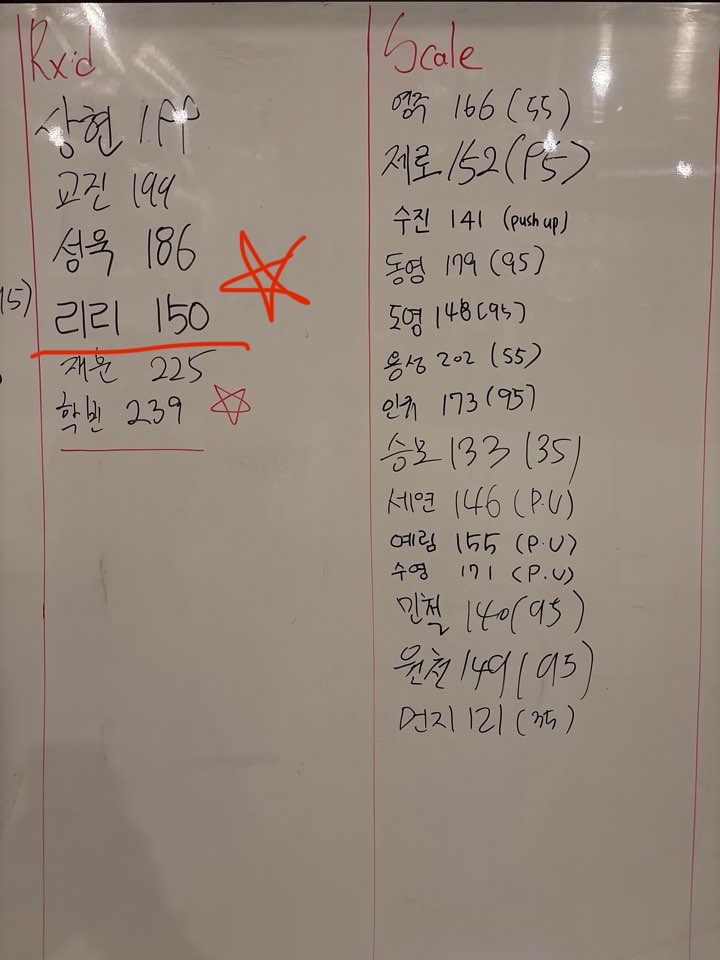 Rx'd
상현 199
교진 199
성욱 186
리리 150
재훈 225
학빈 239
15)
Scale
영주 166 (55)
제로 152 (95)
수진 141 (push up)
동영 179 (95)
도영 148 (95)
용성 202 (55)
인휘 173 (95)
승모 133 (35)
세연 146 (P.U)
예림 155 (P.U)
수영 171 (P.U)
민철 140 (95)
원천 149 (95)
먼지 121 (35)